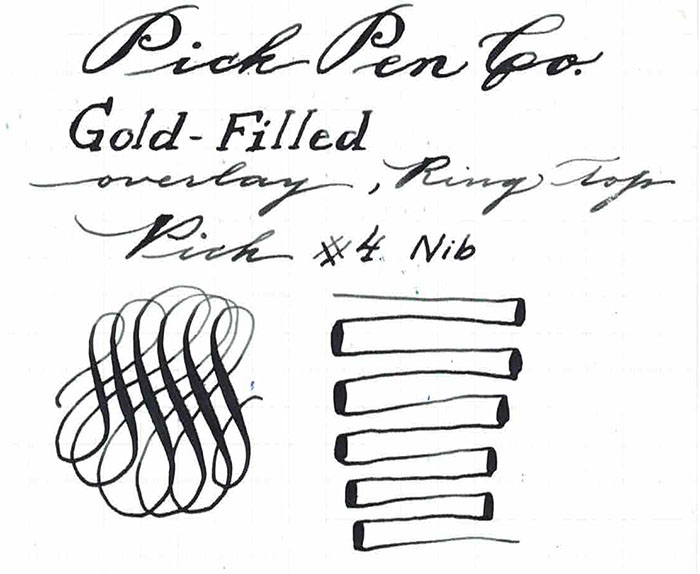 Pick Pen Co.
Gold-Filled
overlay, Ring Top
Pick #4 Nib